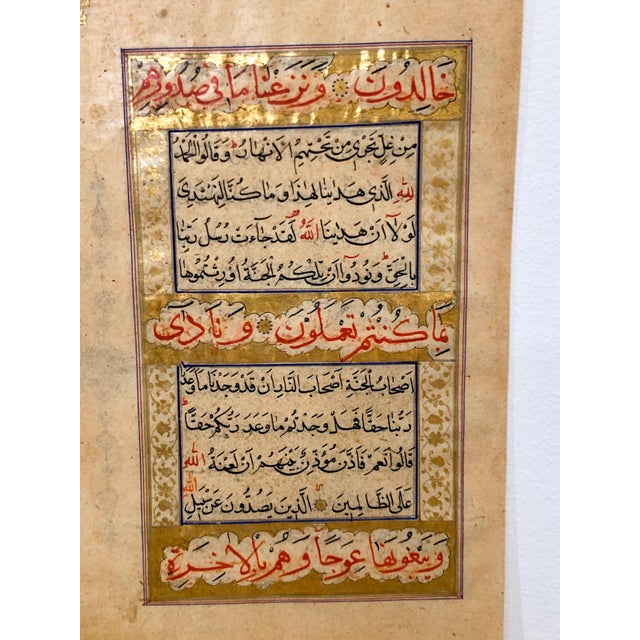 خَالِدُونَ وَنَزَعْنَا مَا فِي صُدُورِهِمْ
مِنْ غِلٍّ تَجْرِي مِنْ تَحْتِهِمُ الْأَنْهَارُ وَقَالُوا الْحَمْدُ
لِلَّهِ الَّذِي هَدَانَا لِهَذَا وَمَا كُنَّا لِنَهْتَدِيَ
لَوْلَا أَنْ هَدَانَا اللَّهُ لَقَدْ جَاءَتْ رُسُلُ رَبِّنَا
بِالْحَقِّ وَنُودُوا أَنْ تِلْكُمُ الْجَنَّةُ أُورِثْتُمُوهَا
بِمَا كُنْتُمْ تَعْمَلُونَ وَنَادَى
أَصْحَابُ الْجَنَّةِ أَصْحَابَ النَّارِ أَنْ قَدْ وَجَدْنَا مَا وَعَدَنَا
رَبُّنَا حَقًّا فَهَلْ وَجَدْتُمْ مَا وَعَدَ رَبُّكُمْ حَقًّا
قَالُوا نَعَمْ فَأَذَّنَ مُؤَذِّنٌ بَيْنَهُمْ أَنْ لَعْنَةُ اللَّهِ
اللَّهِ
عَلَى الظَّالِمِينَ الَّذِينَ يَصُدُّونَ عَنْ سَبِيلِ
وَيَبْغُونَهَا عِوَجًا وَهُمْ بِالْآخِرَةِ